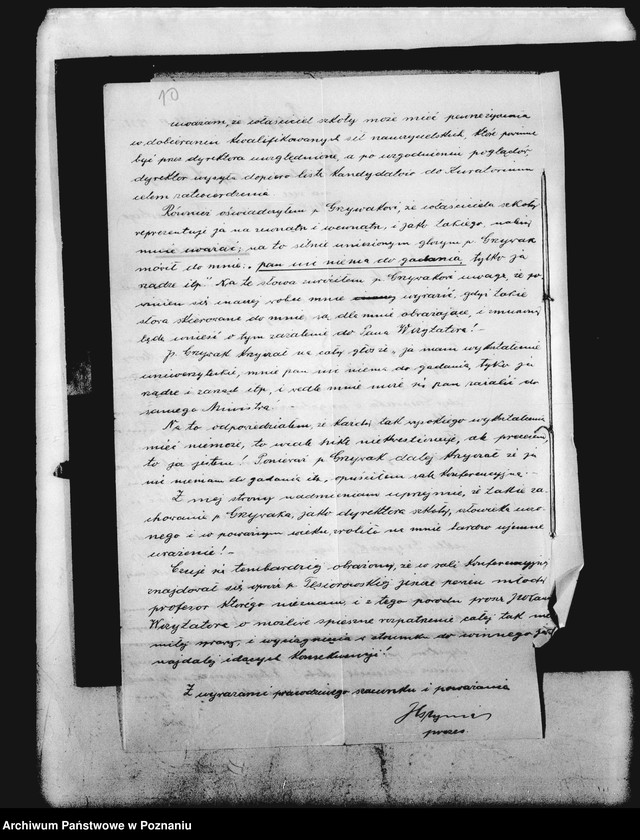 10
uważam, że właściciel szkoły może mieć pewne życzenia
w dobieraniu kwalifikowanych sił nauczycielskich, które powinne
być przez dyrektora uwzględnione, a po uzgodnieniu poglądów,
dyrektor wysyła dopiero listę kandydatów do Kuratorium
celem zatwierdzenia
Również oświadczyłem p Grzywakowi, że właściciela szkoły
reprezentuję ja na zewnątrz i wewnątrz, i jako takiego, należy
mnie uważać; na to silnie uniesionym głosem p Grzywak
mówił do mnie: pan nic niema do gadania, tylko ja
rządzę itp. Na te słowa zwróciłem p Grzywakowi uwagę, że po-
winien się inaczej wobec mnie wyrazić, gdyż takie
słowa skierowane do mnie, są dla mnie obrażające, i zmuszony
będę wnieść o tym zażalenie do Pana Wizytatora!-
P. Grzywak krzyczał na cały głos że, ja mam wykształcenie
uniwersyteckie, mnie pan nic niema do gadania, tylko ja
rządzę i zarząd itp, i wedle mnie może się pan żalić do
samego Ministra.-
Na to odpowiedziałem, że każdy tak wysokiego wykształcenia
mieć niemoże, to wcale nikt niekwestjonuje, ale prezesem,
to ja jestem! Ponieważ p Grzywak dalej krzyczał że ja
nic niemam do gadania itp, opuściłem salę konferencyjną.-
Z mej strony nadmieniam uprzejmie, że takie za-
chowanie p Grzywaka, jako dyrektora szkoły, człowieka uczo-
nego i w poważnym wieku, zrobiło na mnie bardzo ujemne
wrażenie!-
Czuję się tembardziej obrażony, że w sali konferencyjnej
znajdował się oprócz p. Tęsiorowskiej jeszcze pewien młody
profesor którego nieznam, i z tego powodu proszę Pana
Wizytatora o możliwie spieszne rozpatrzenie całej tak nie
miłej sprawy, i wyciągnięcia w stosunku do winnego jak
najdalej idących konsekwencji!
Z wyrazami prawdziwego szacunku i poważania
prezes
Archiwum Państwowe w Poznaniu